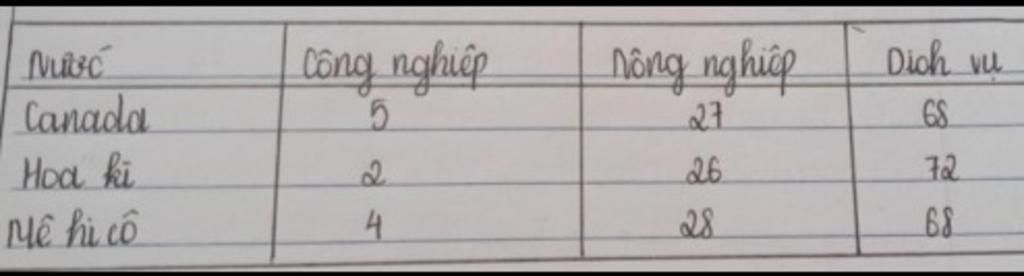 Nước Công nghiệp Nông nghiệp Dịch vụ
Canada 5 27 68
Hoa kì 2 26 72
Mê hi cô 4 28 68